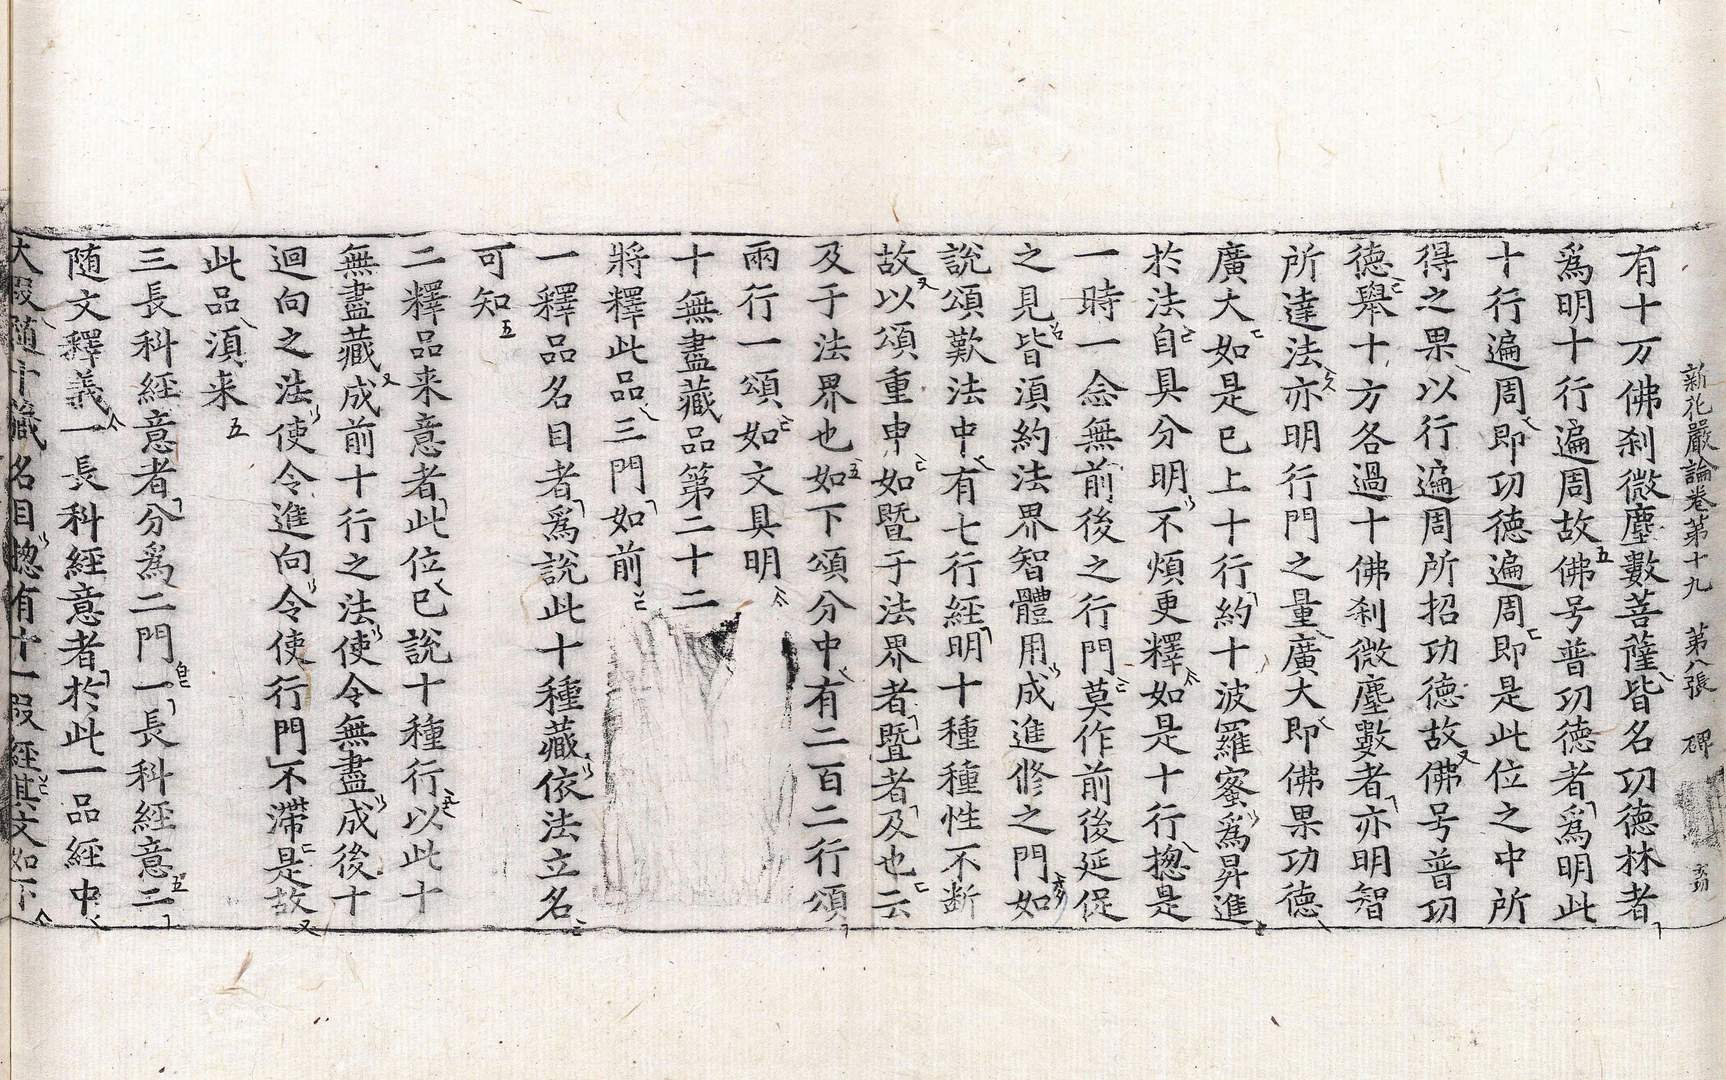 新花嚴論卷第十九 第八張 碑
有十万佛刹微塵數菩薩皆名功德林者
爲明十行遍周故佛号普功德者爲明此
十行遍周即功德遍周即是此位之中所
得之果以行遍周所招功德故佛号普功
德舉十方各過十佛刹微塵數者亦明智
所達法亦明行門之量廣大即佛果功德
廣大如是已上十行約十波羅蜜爲昇進
於法自具分明不煩更釋如是十行揔是
一時一念無前後之行門莫作前後延促
之見皆湏約法界智體用成進修之門如
說頌歎法中有七行經明十種種性不断
故以頌重申如暨于法界者暨者及也云
及于法界也如下頌分中有二百二行頌
兩行一頌如文具明
十無盡藏品第二十二
將釋此品三門如前
一釋品名目者爲說此十種藏依法立名
可知
二釋品来意者此位已說十種行以此十
無盡藏成前十行之法使令無盡成後十
迴向之法使令進向令使行門不滯是故
此品湏来
三長科經意者分爲二門一長科經意二
随文釋義一長科經意者於此一品經中
大段随十藏名目揔有十一段經其文如下